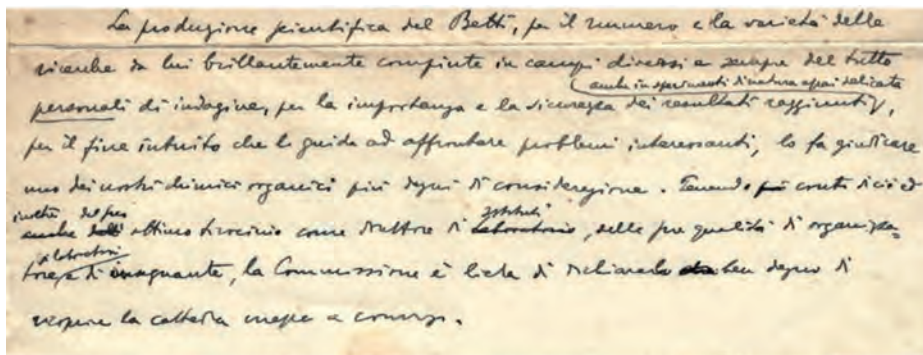 La produzione scientifica del Betti, per il numero e la varietà delle
ricerche da lui brillantemente compiute in campi diversi e sempre del tutto
anche in esperimenti di natura assai delicata
personali di indagine, per la importanza e la sicurezza dei resultati raggiunti,
per il fine intuito che lo guida ad affrontare problemi interessanti, lo fa giudicare
uno dei nostri chimici organici più degni di considerazione. Tenendo conto di ciò e
inoltre del suo Istituti
ottimo tirocinio come direttore di Laboratorio, delle sue qualità di organizza=
tore e di insegnante, la Commissione è lieta di dichiararlo ben degno di
ricoprire la cattedra messa a concorso.